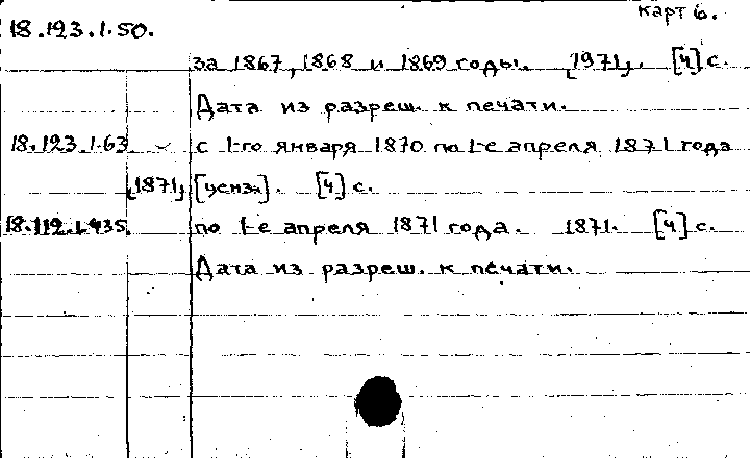 карт 6.
18.123.1.50.
за 1867, 1868 и 1869 годы. [1971]. [4] с.
Дата из разреш. к печати.
18.123.1.63 с 1-го января 1870 по 1-е апреля 1871 года
[1871] [ценз.]. [4] с.
18.112.1.435. по 1-е апреля 1871 года. 1871. [4] с.
Дата из разреш. к печати.